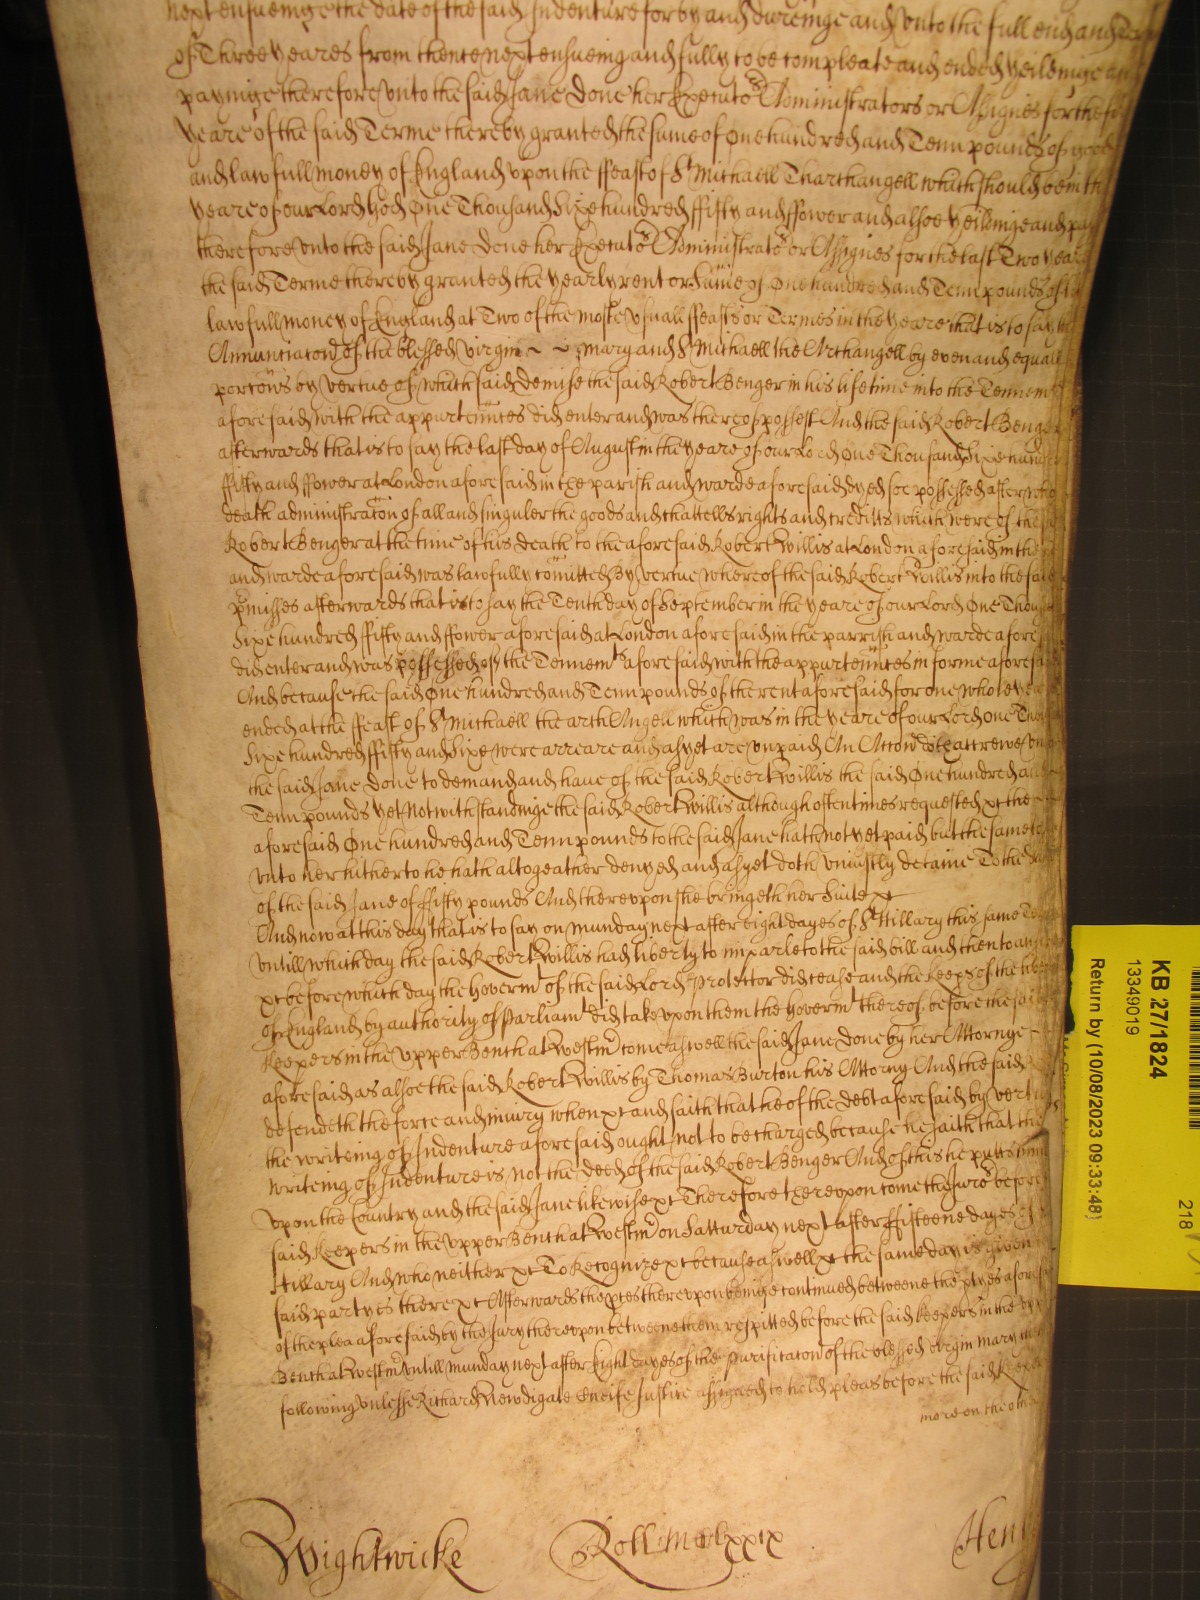 next ensueinge the date of the said Indenture for by and dureinge and vnto the full end and
of Three yeares from thence next ensueing and fully to be compleate and ended yeildinge
payinge therefore vnto the said Jane Done her Executors Administrators or Assignes for the
yeare of the said Terme thereby granted the sume of One hundred and Tenn pounds of good
and lawfull money of England vpon the ffeast of St Michaell Tharchangell which should be in the
yeare of our Lord God One Thousand Sixe hundred ffifty and ffower and alsoe yeildinge and
therefore vnto the said Jane Done her Executors Administrators or Assignes for the last Two yeares
the said Terme thereby granted the yearly rent or Sume of One hundred and Tenn pounds of
lawfull money of England at Two of the moste vsuall ffeasts or Termes in the yeare that is to say
Annunciacon of the blessed virgin Mary and St Michaell the Archangell by even and equall
porcons by vertue of which said demise the said Robert Benger in his lifetime into the Tennemts
aforesaid with the appurtennces did enter and was thereof possest And the said Robert Benger
afterwards that is to say the last day of August in the yeare of our Lord One Thousand Sixe hundred
ffifty and ffower at London aforesaid in the parish and warde aforesaid dyed soe possessed after whose
death administracon of all and singuler the goods and chattells rights and creditts which were of the
Robert Benger at the time of his death to the aforesaid Robert Willis at London aforesaid in the
and warde aforesaid was lawfully comitted By vertue whereof the said Robert Willis into the said
pmisses afterwards that is to say the Tenth day of September in the yeare of our Lord One Thousand
Sixe hundred ffifty and ffower aforesaid at London aforesaid in the parrish and warde
did enter and was possessed of the Tennemts aforesaid with the appurtennces in forme aforesaid
And because the said One hundred and Tenn pounds of the rent aforesaid for one whole yeare
ended at the ffeast of St Michaell the archAngell which was in the yeare of our Lord one
Sixe hundred ffifty and Sixe were arreare and as yet are vnpaid An Accon
the said Jane Done to demand and have of the said Robert Willis the said One hundred and
Tenn pounds yet Notwithstandinge the said Robert Willis although oftentimes requested xt the
aforesaid One hundred and Tenn pounds to the said Jane hath not yet paid but the same
vnto her hitherto he hath altogeather denyed and as yet doth vniustly detaine To the
of the said Jane of ffifty pounds And therevpon she bringeth her Suite xt
And now at this day that is to say on Munday next after eight dayes of St Hillary this same
vntill which day the said Robert Willis had liberty to imparle to the said bill and then to
xt before which day the Goverm't of the said Lord Protector did cease and the Keeps of the
of England by authority of Parliamt did take vpon them the Governmt thereof before the said
Keepers in the Vpper Bench at Westm come aswell the said Jane Done by her Attornye
aforesaid as alsoe the said Robert Willis by Thomas Burton his Attorny And the said
defendeth the force and iniury when xt and saith that he of the debt aforesaid by vertue
the writeing of Indenture aforesaid ought not to be charged because he saith that the
writeing of Indenture is not the deed of the said Robert Benger And of this he putts
vpon the Country and the said Jane likewise xt Therefore therevpon come the Juro's before
said Keepers in the vpper Bench at Westm on Satturday next after ffifteene dayes of
Hillary And who neither xt To Recognize xt because aswell xt the same day is given
said partyes there xt Afterwards the pces therevpon beinge continued betweene the ptyes
of the plea aforesaid by the Jury therevpon betweene them respitted before the said Keepers in the
Bench at Westm vntill Munday next after Eight dayes of the Purificacon of the blessed virgin Mary
following vnlesse Richard Newdigate Cheife Justice assigned to hold pleas before the said
more on the other
Wightwicke
Roll
Hen
KB 27/1824
13349019
Return by (10/08/2023 09:33:48)
218